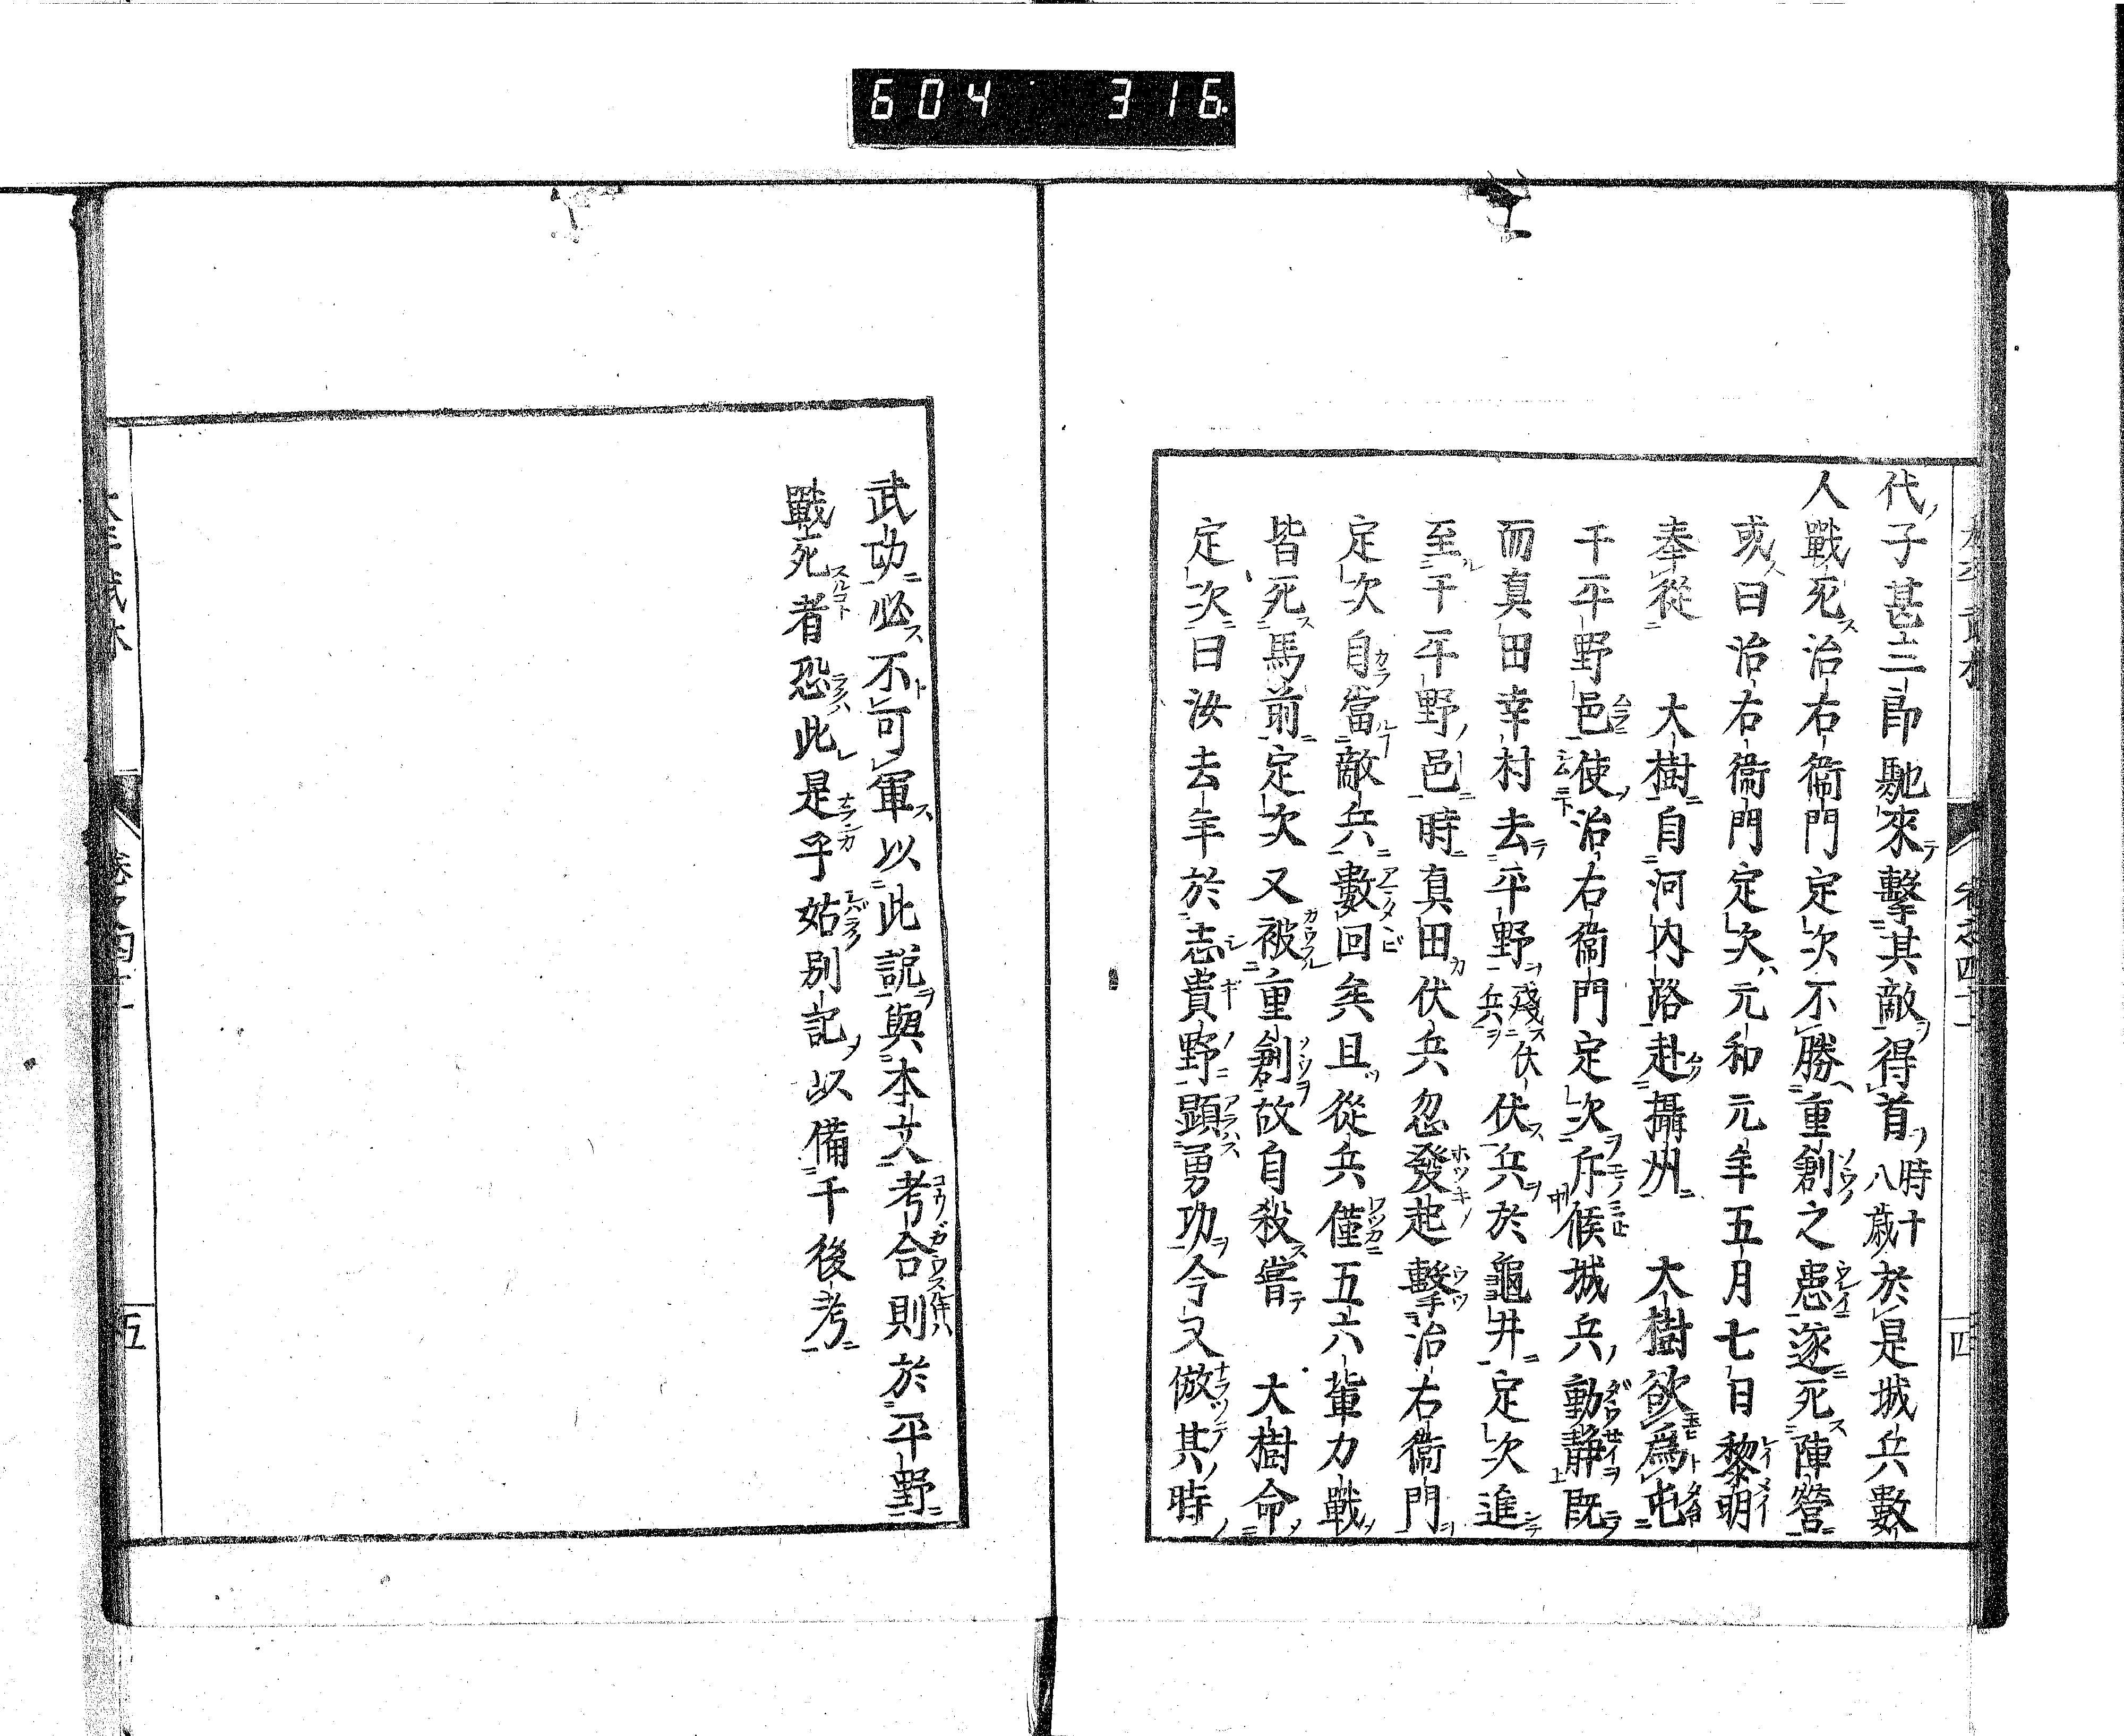 604 316
代子甚三郎馳來擊其敵得首時十八歳於是城兵數
人戰死治右衞門定次不勝重創之患遂死陣營
或曰治右衞門定次元和元年五月七日黎明
奉從 大樹自河内路赴攝州 大樹欲爲屯
于平野邑使治右衞門定次斥候城兵動静既
而真田幸村去平野殘伏兵伏兵於龜井定次進
至于平野邑時真田伏兵忽發起擊治右衞門
定次自當敵兵數回矣且從兵僅五六輩力戰
皆死馬前定次又被重創故自殺嘗 大樹命
定次曰汝去年於志貴野顕勇功今又倣其時
四
武功必不可軍以此説與本文考合則於平野
戰死者恐此是乎姑別記以備于後考
五